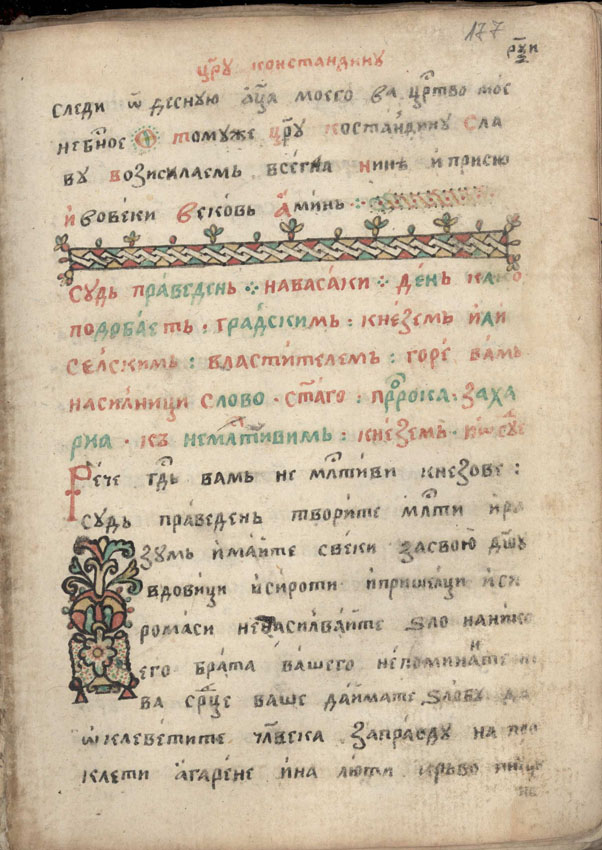 177
рꙋ҃и
цр҃ꙋ констандинꙋ
следи ѿ десную ѻц҃а моего ва црт҃во мое
небн҃ое томуже цр҃ꙋ костандинꙋ сла
вꙋ возисилаемь всегда нинѣ и присно
и вовеки вековь аминь
сꙋдь праведень навасаки день како
подобаеть : градскимь : кнеземь или
селскимь : властителемь : горе вамь
насилници слово ст҃аго прⷪ҇рока заха
риа къ немлт҃ивимь : кнеземь
Рече гд҃ь вамь не млт҃иви кнезове :
сꙋдь праведень творите млт҃и и ра
зꙋмь имаите свеки засвою дш҃ꙋ
вдовици и сироти и пришелци и си
ромаси не насилваите ѕло на никого
его брата вашего непоминаите
ва срц҃е ваше даимате ѕлобꙋ да
ѡклеветите чл҃века заправдꙋ на про
клети агарене и на люти крьво